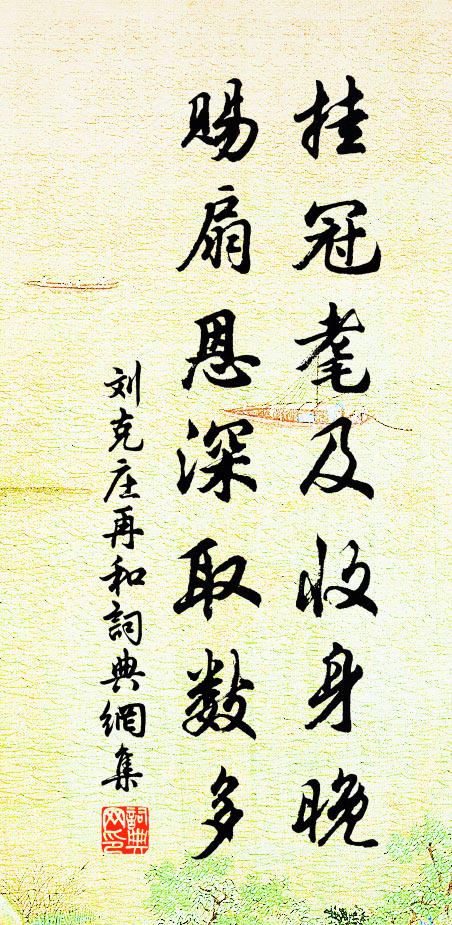 挂冠耄及收身晚
赐扇恩深取数多
刘克庄再和詞典網集
詞典
网印